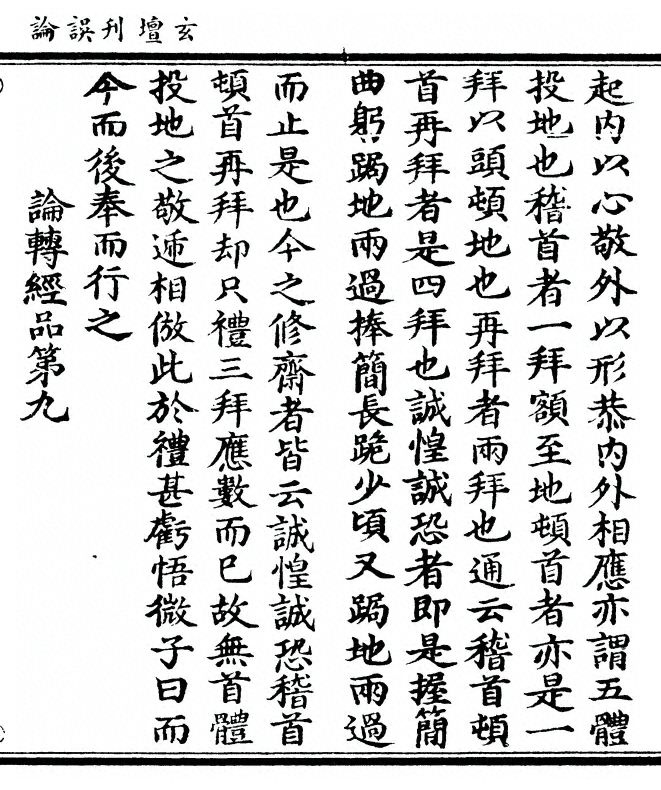 玄壇刊誤論
起內以心敬外以形恭內外相應亦謂五體
投地也稽首者一拜額至地頓首者亦是一
拜以頭頓地也再拜者兩拜也通云稽首頓
首再拜者是四拜也誠惶誠恐者即是握簡
曲躬跼地兩過捧簡長跪少頃又跼地兩過
而止是也今之修齋者皆云誠惶誠恐稽首
頓首再拜却只禮三拜應數而已故無首體
投地之敬遞相倣此於禮甚虧悟微子曰而
今而後奉而行之
論轉經品第九